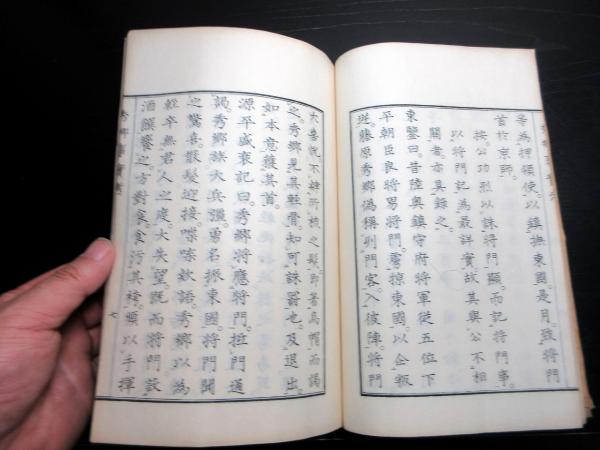 等為押領使以鎮撫東國。是月。致將門
首於京師。
按公功烈以誅將門顯。而記將門事。
以將門記為最詳實。故其與公不相
關者。亦具錄之。
東鑒曰。昔陸奧鎮守府將軍從五位下
平朝臣良將男將門。虜掠東國。以企叛
逆。藤原秀鄉偽稱列門客。入彼陣。將門
大喜悅。不肆所梳之髮。即著烏帽而謁
之。秀鄉見其輕骨。知可誅罰也。及退出。
如本意獲其首。
源平盛衰記曰。秀鄉將應將門。抵門通
謁。秀鄉族大兵強。勇名振東國。將門聞
之驚喜。散髮迎接。喋喋欵語。秀鄉以為
輕卒無君人之度。大失望。既而將門設
酒饌饗之。方對食。食污其袴。以手揮
七